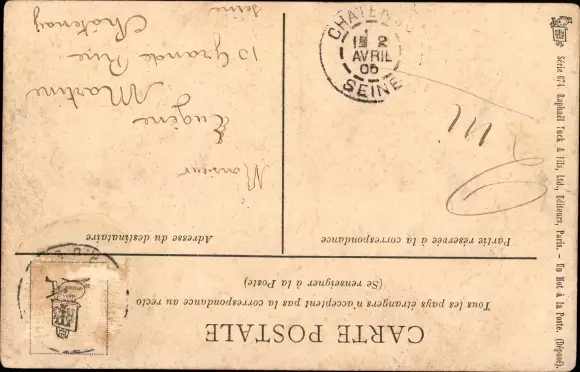 CARTE POSTALE
Tous les pays étrangers n'acceptent pas la correspondance au recto
(Se renseigner à la Poste)
Partie réservée à la correspondance
Adresse du destinataire
Monsieur
Eugène
Martine
Grande Rue
Châtenay
Seine
CHATENAY
2
AVRIL
05
SEINE
Série 674 Raphaël Tuck & Fils, Ltd., Editeurs, Paris. – Un Mot à la Poste. (Déposé).